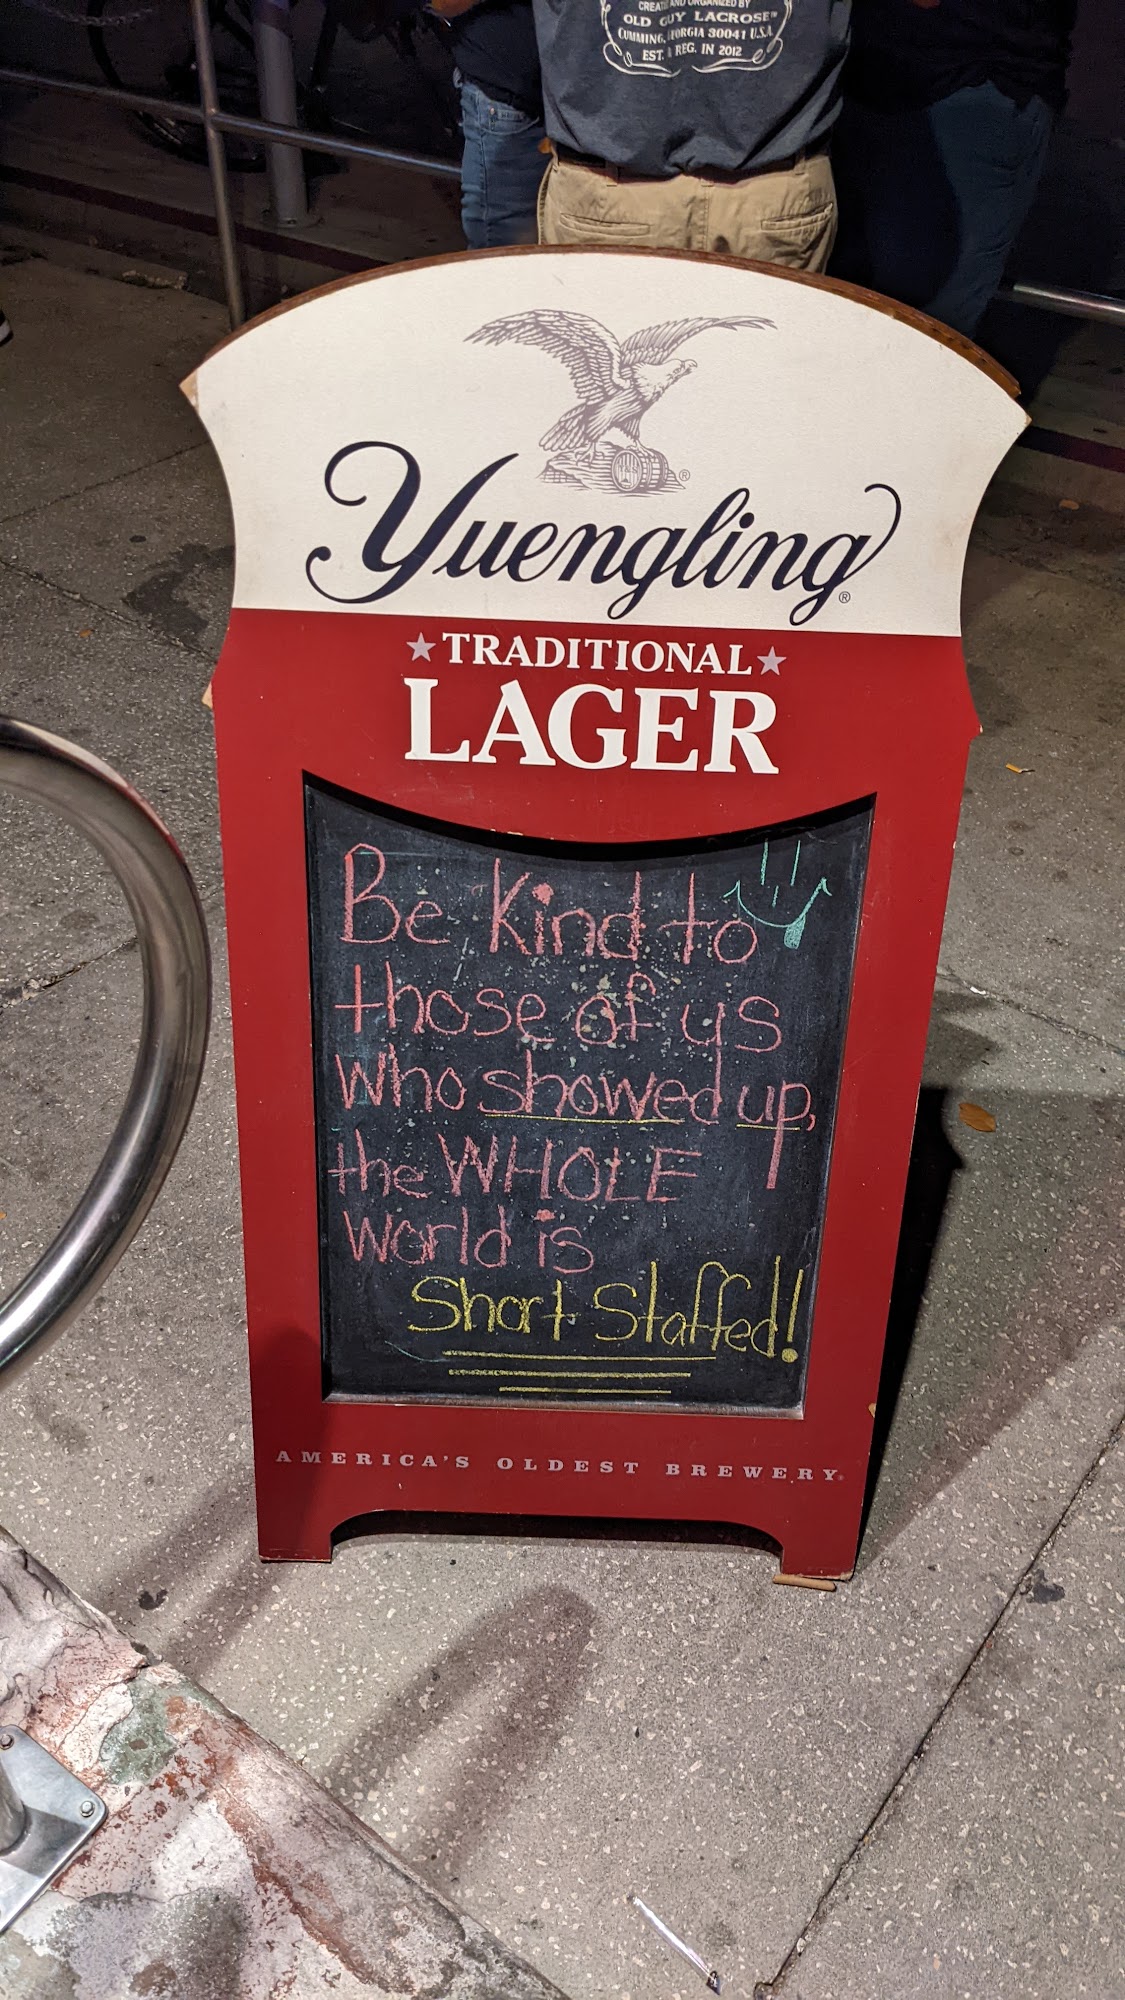 CREATED AND ORGANIZED BY
OLD GUY LACROSE™
CUMMING, GEORGIA 30041 U.S.A.
EST. & REG. IN 2012
®
Yuengling®
★TRADITIONAL★
LAGER
Be Kind to
those of us
Who showed up,
the WHOLE
World is
Short Staffed!
AMERICA'S OLDEST BREWERY®